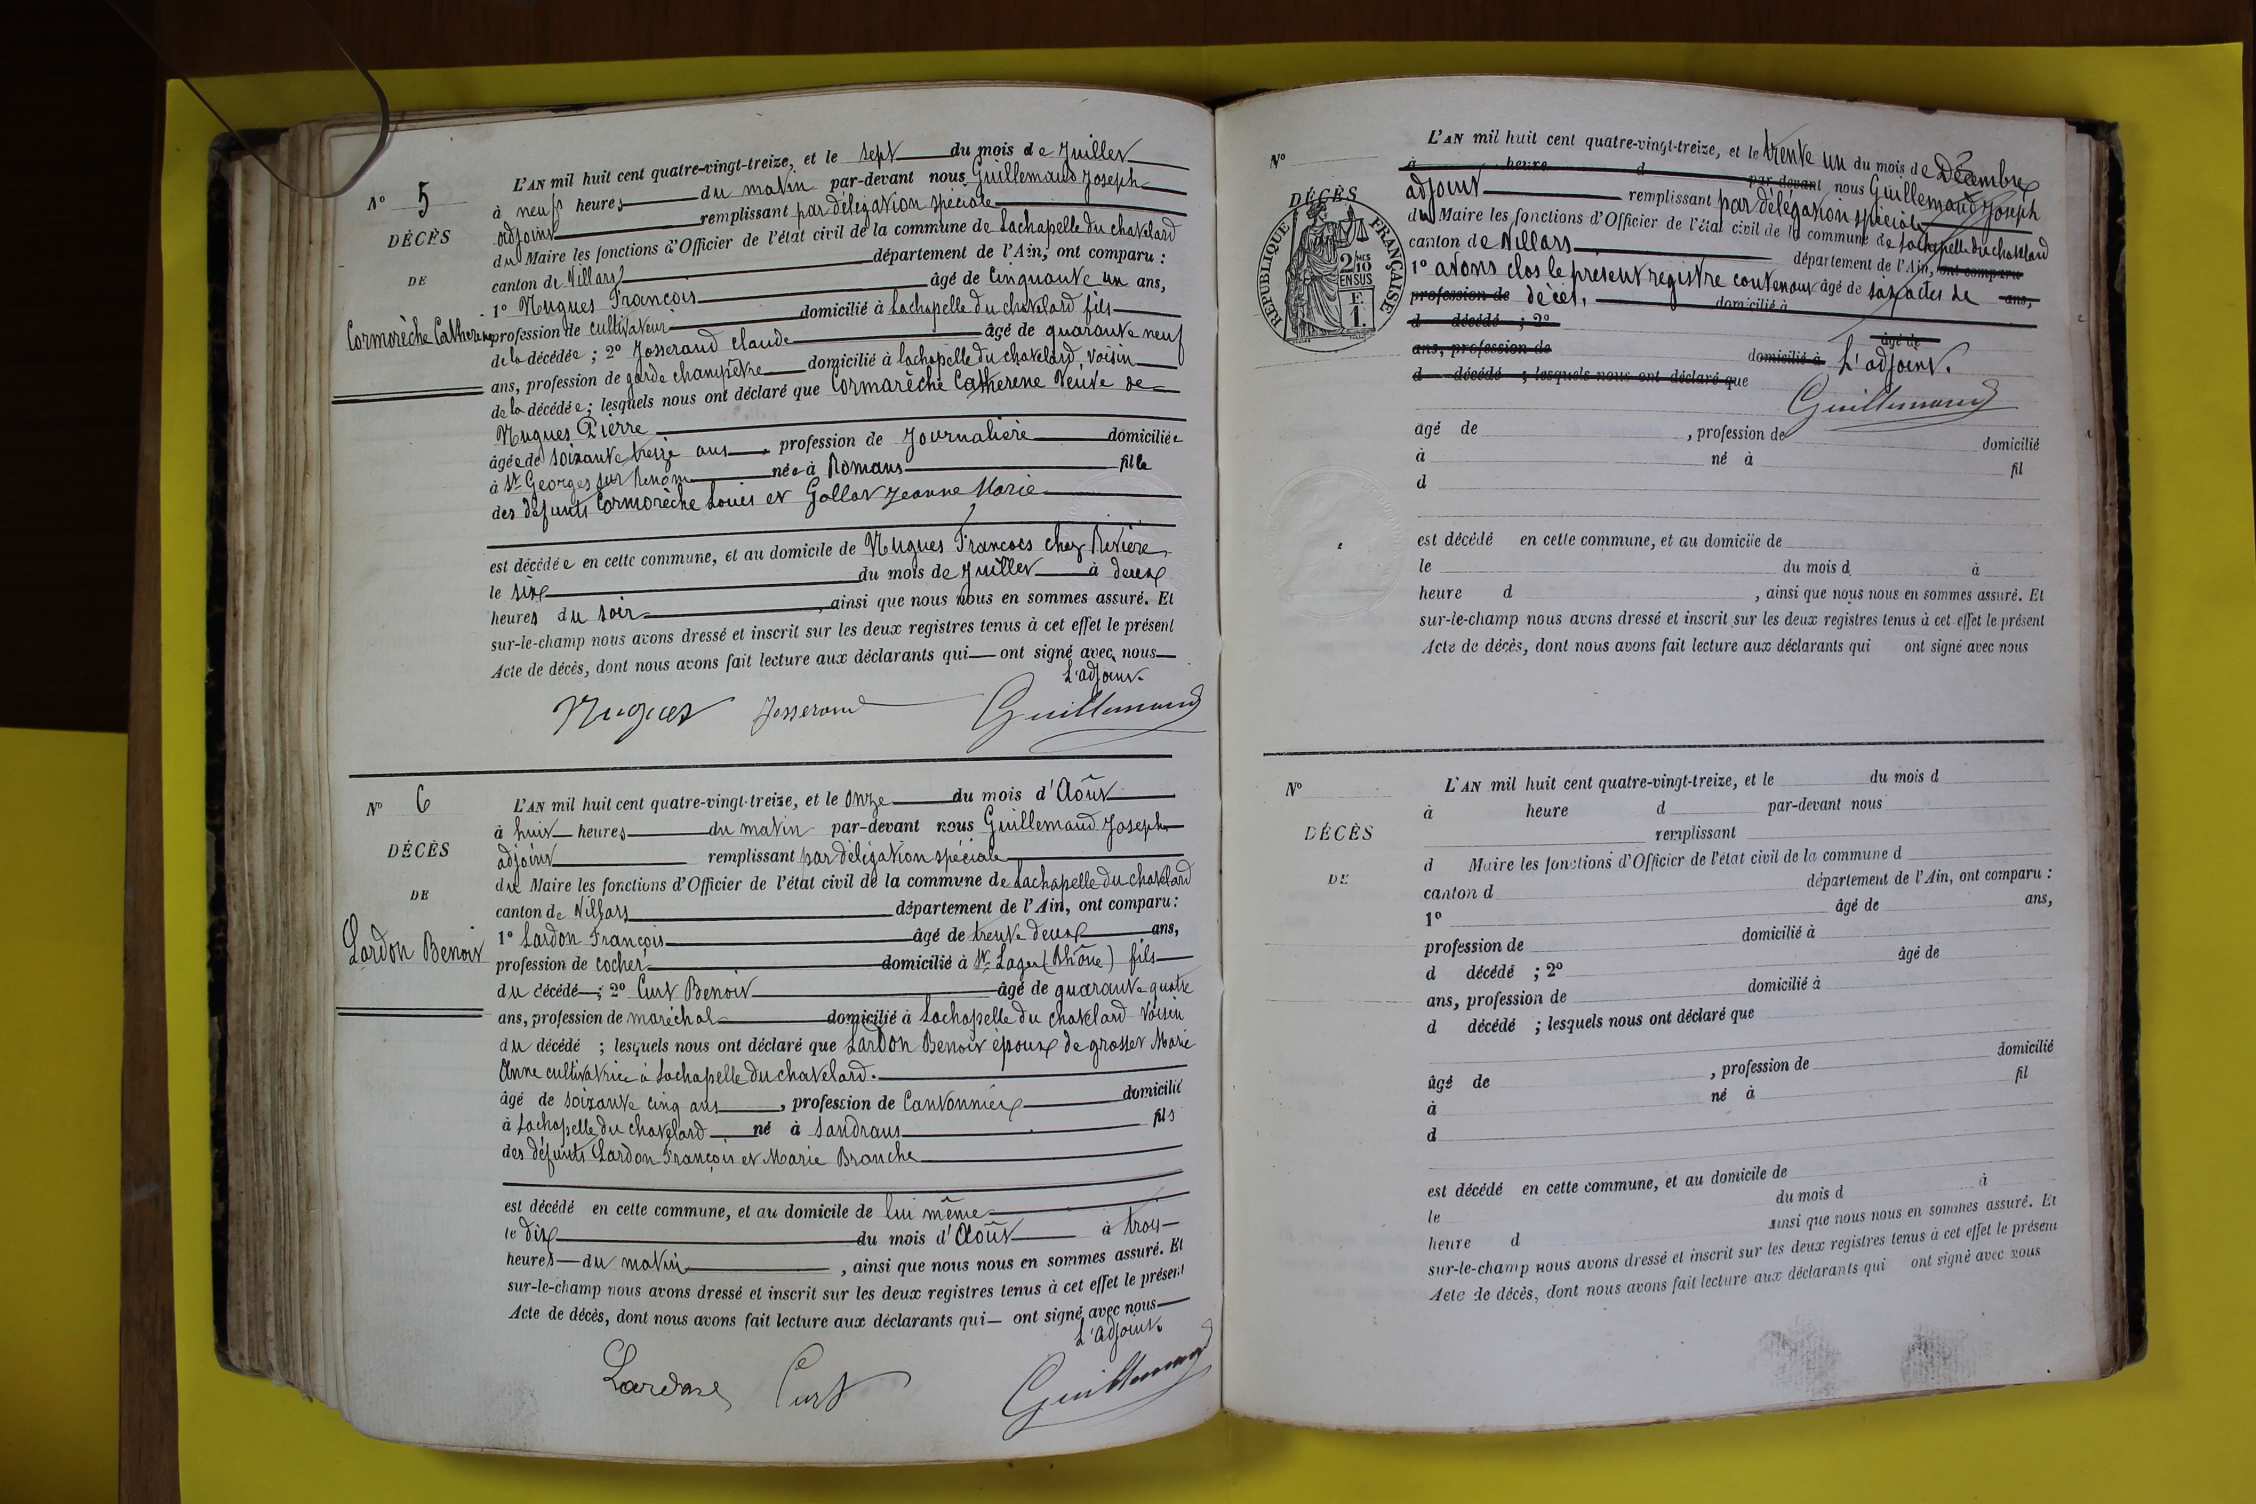 N° 5
DÉCÈS
DE
Cormorèche Catherine
L'AN mil huit cent quatre-vingt-treize, et le sept du mois de Juillet
à neuf heures du matin par-devant nous Guillemaud Joseph
adjoint remplissant par délégation spéciale
du Maire les fonctions d'Officier de l'état civil de la commune de Lachapelle du chatelard
canton de Villars département de l'Ain, ont comparu :
1° Nugues François âgé de Cinquante un ans,
profession de cultivateur domicilié à Lachapelle du chatelard fils
de la décédée ; 2° Josserand claude âgé de quarante neuf
ans, profession de garde champêtre domicilié à Lachapelle du chatelard voisin
de la décédée ; lesquels nous ont déclaré que Cormarèche Catherine Veuve de
Nugues Pierre
âgée de soixante treize ans, profession de Journalière domiciliée
à St Georges sur Renom née à Romans fille
des défunts Cormorèche Louis et Gollot Jeanne Marie
est décédée en cette commune, et au domicile de Nugues François chez Rivière
le six du mois de Juillet à deux
heures du soir, ainsi que nous nous en sommes assuré. Et
sur-le-champ nous avons dressé et inscrit sur les deux registres tenus à cet effet le présent
Acte de décès, dont nous avons fait lecture aux déclarants qui ont signé avec nous
L'adjoint.
Nugues Josserand Guillemaud
N° 6
DÉCÈS
DE
Lardon Benoit
L'AN mil huit cent quatre-vingt-treize, et le onze du mois d'Août
à huit heures du matin par-devant nous Guillemaud Joseph
adjoint remplissant par délégation spéciale
du Maire les fonctions d'Officier de l'état civil de la commune de Lachapelle du chatelard
canton de Villars département de l'Ain, ont comparu :
1° Lardon François âgé de trente deux ans,
profession de cocher domicilié à St Lager (Rhône) fils
du décédé ; 2° Curt Benoit âgé de quarante quatre
ans, profession de maréchal domicilié à Lachapelle du chatelard voisin
du décédé ; lesquels nous ont déclaré que Lardon Benoit époux de grosset Marie
Anne cultivatrice à Lachapelle du chatelard.
âgé de soixante cinq ans, profession de Cantonnier domicilié
à Lachapelle du chatelard né à Sandrans fils
des défunts Lardon François et Marie Branche
est décédé en cette commune, et au domicile de lui même
le dix du mois d'Août à trois
heures du matin, ainsi que nous nous en sommes assuré. Et
sur-le-champ nous avons dressé et inscrit sur les deux registres tenus à cet effet le présent
Acte de décès, dont nous avons fait lecture aux déclarants qui ont signé avec nous
L'adjoint.
Lardon Curt Guillemaud
N°
DÉCÈS
RÉPUBLIQUE FRANÇAISE
2/10 MES
EN SUS
E.
1.
L'AN mil huit cent quatre-vingt-treize, et le trente un du mois de Décembre
à heure d par-devant nous Guillemaud Joseph
adjoint remplissant par délégation spéciale
du Maire les fonctions d'Officier de l'état civil de la commune de Lachapelle du chatelard
canton de Villars département de l'Ain, ont comparu
1° avons clos le présent registre contenant âgé de six actes de ans,
profession de décès, domicilié à
d décédé ; 2° âgé de
ans, profession de domicilié à L'adjoint.
d décédé ; lesquels nous ont déclaré que
Guillemaud
âgé de , profession de domicilié
à né à fil
d
est décédé en cette commune, et au domicile de
le du mois d à
heure d , ainsi que nous nous en sommes assuré. Et
sur-le-champ nous avons dressé et inscrit sur les deux registres tenus à cet effet le présent
Acte de décès, dont nous avons fait lecture aux déclarants qui ont signé avec nous
N°
DÉCÈS
DE
L'AN mil huit cent quatre-vingt-treize, et le du mois d
à heure d par-devant nous
remplissant
d Maire les fonctions d'Officier de l'état civil de la commune d
canton d département de l'Ain, ont comparu :
1° âgé de ans,
profession de domicilié à
d décédé ; 2° âgé de
ans, profession de domicilié à
d décédé ; lesquels nous ont déclaré que
âgé de , profession de domicilié
à né à fil
d
est décédé en cette commune, et au domicile de
le du mois d à
heure d ainsi que nous nous en sommes assuré. Et
sur-le-champ nous avons dressé et inscrit sur les deux registres tenus à cet effet le présent
Acte de décès, dont nous avons fait lecture aux déclarants qui ont signé avec nous